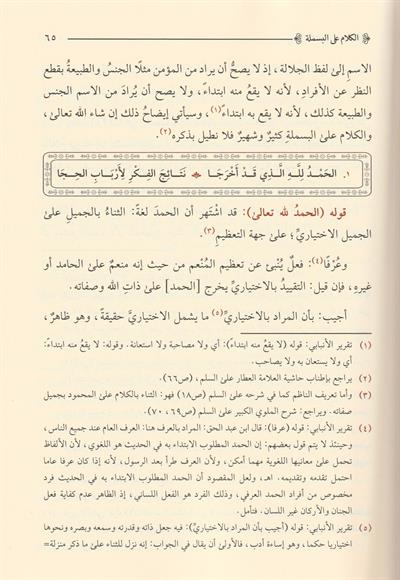 الكلام على البسملة ٦٥
الاسمِ إلىٰ لفظ الجلالة، إذ لا يصحُّ أن يراد من المؤمن مثلًا الجنسُ والطبيعةُ بقطع
النظر عن الأفراد، لأنه لا يقعُ منه ابتداءً، ولا يصح أن يُرادَ من الاسم الجنس
والطبيعة كذلك، لأنه لا يقع به ابتداءً(١)، وسيأتي إيضاحُ ذلك إن شاء الله تعالىٰ،
والكلام علىٰ البسملةِ كثيرٌ وشهيرٌ فلا نطيل بذكره(٢).
١. الحَمْدُ لِلَّهِ الَّذِي قَدْ أَخْرَجَا نَتَائِجَ الفِكْرِ لِأَرْبَابِ الحِجَا
قوله (الحمدُ لله تعالىٰ): قد اشتهر أن الحمدَ لغةً: الثناءُ بالجميلِ علىٰ
الجميل الاختياريِّ؛ علىٰ جهة التعظيمِ(٣).
وعُرْفًا(٤): فعلٌ يُنْبئ عن تعظيم المُنْعم من حيث إنه منعمٌ علىٰ الحامد أو
غيرِهِ، فإن قيل: التقييدُ بالاختياريِّ يخرج [الحمد] علىٰ ذاتِ الله وصفاته.
أجيب: بأن المراد بالاختياريِّ(٥) ما يشمل الاختياريَّ حقيقةً، وهو ظاهرٌ،
(١) تقرير الأنبابي: قوله (لا يقعُ منه ابتداءً): أي ولا مصاحبة ولا استعانة. وقوله: لا يقع به ابتداءً:
أي ولا يستعان به ولا يصاحب.
(٢) يراجع بإطناب حاشية العلامة العطار علىٰ السلم، (ص٦٦).
(٣) وأما تعريف الناظم كما في شرحه علىٰ السلم (ص١٨) فهو: الثناء بالكلام علىٰ المحمود بجميل
صفاته. ويراجع: شرح الملوي الكبير علىٰ السلم (ص٦٩، ٧٠).
(٤) تقرير الأنبابي: قوله (عرفا): قال ابن عبد الحق: المراد بالعرف هنا: العرف العام عند جميع الناس،
وحينئذ لا يتم قول بعضهم: إن الحمد المطلوب الابتداء به في الحديث هو اللغوي، لأن الألفاظ
تحمل علىٰ معانيها اللغوية مهما أمكن، ولأن العرف طرأ بعد الرسول، لأنه إذا كان عرفا عاما
احتمل تقدمه وتقديمه. اهـ، ولعل المقصود أن الحمد المطلوب الابتداء به في الحديث فرد
مخصوص من أفراد الحمد العرفي، وذلك الفرد هو الفعل اللساني، إذ الظاهر عدم كفاية فعل
الجنان والأركان غير اللسان. فتأمل.
(٥) تقرير الأنبابي: قوله (أجيب بأن المراد بالاختياريِّ): فيه جعل ذاته وقدرته وسمعه وبصره ونحوها
اختياريا حكما، وهو إساءة أدب، فالأولىٰ أن يقال في الجواب: إنه نزل للثناء علىٰ ما ذكر منزلة=